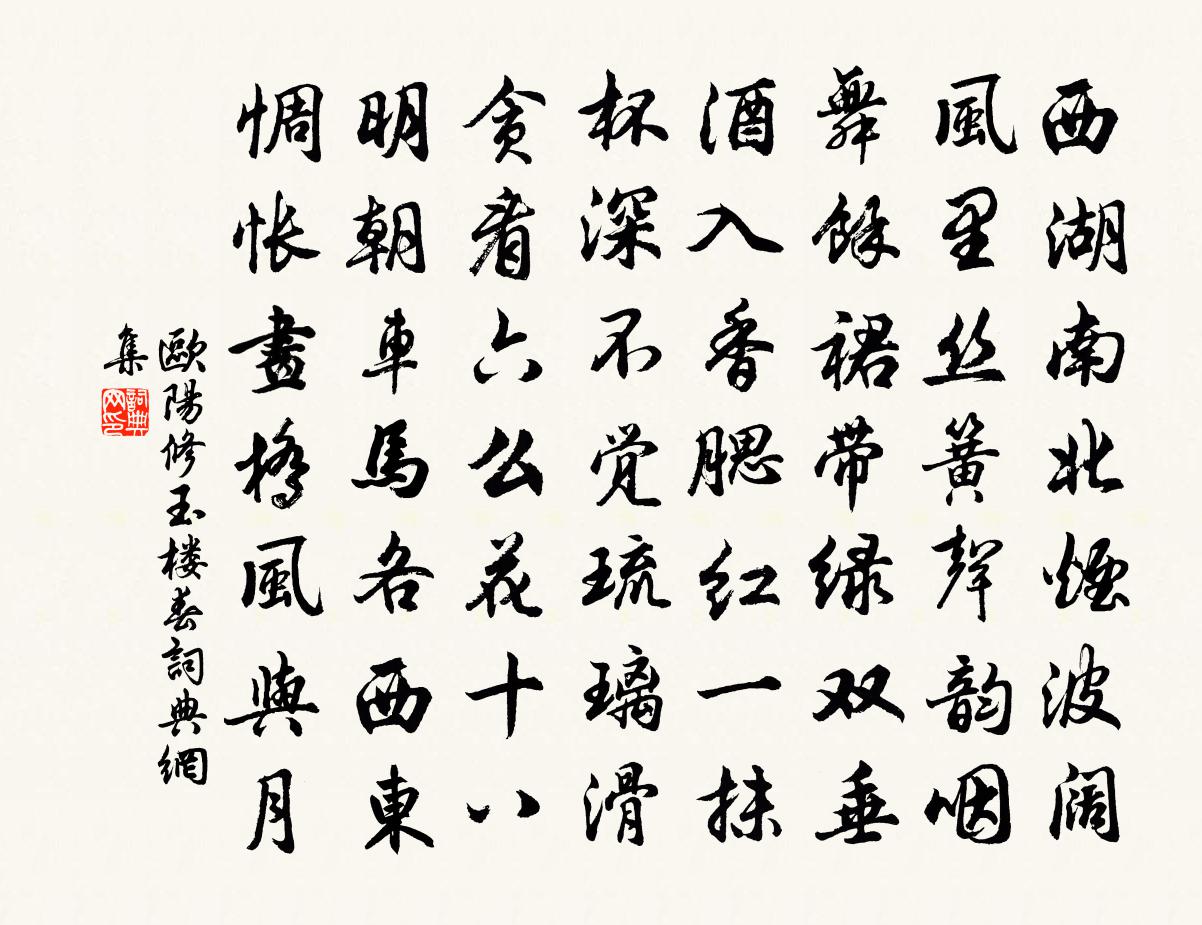 西湖南北煙波阔
風里丝簧聲韵咽
舞餘裙带绿双垂
酒入香腮红一抹
杯深不觉琉璃滑
贪看六么花十八
明朝車馬各西東
惆怅畫橋風與月
歐陽修玉楼春詞典網
集
詞典
网印